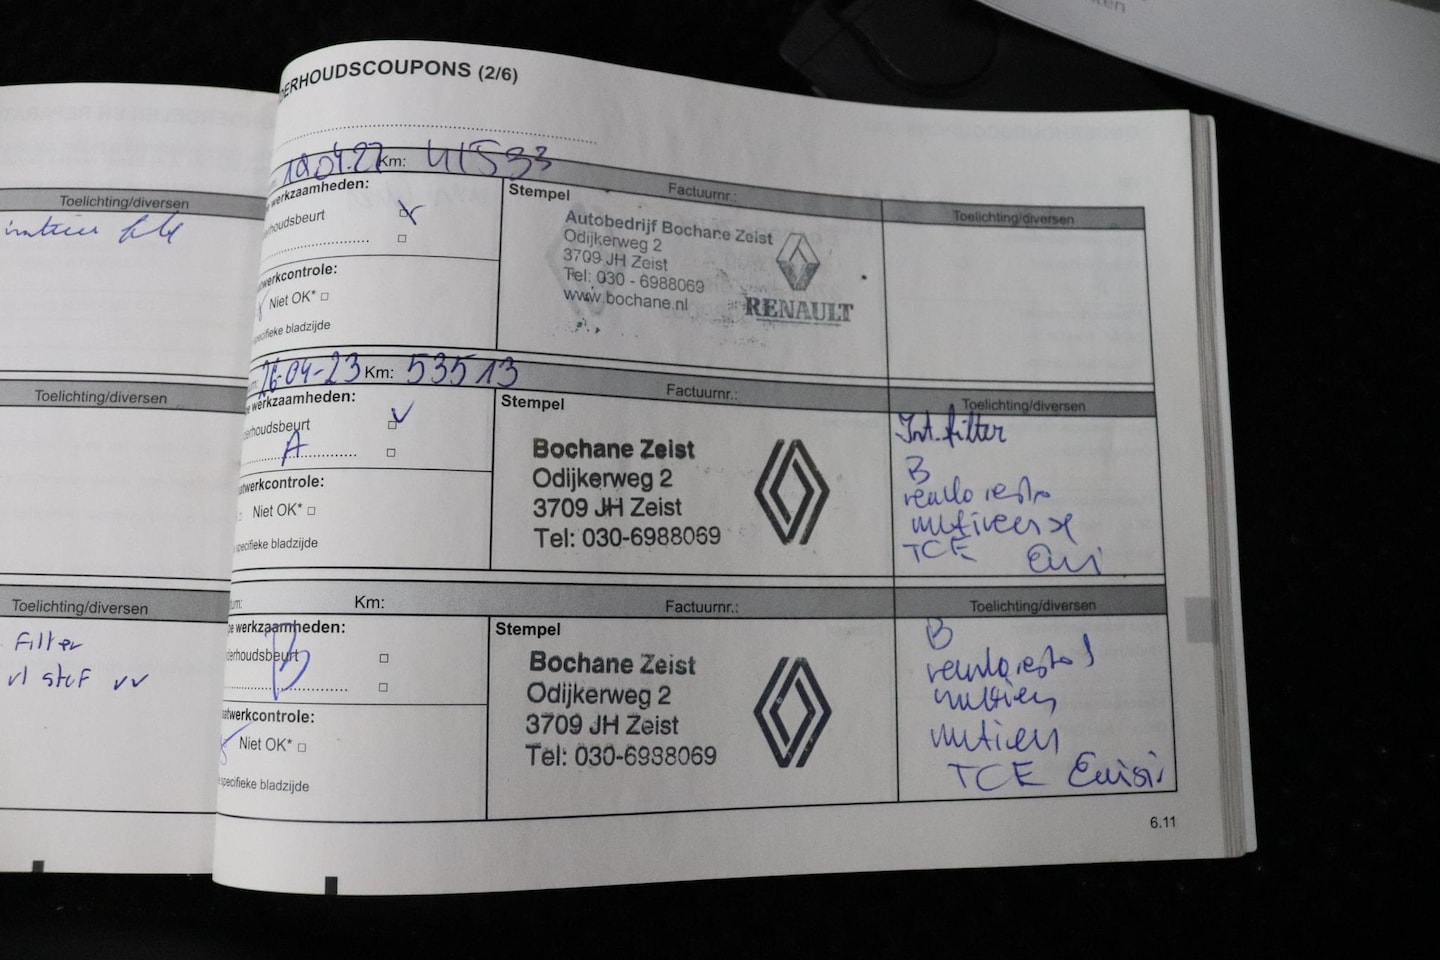 DERHOUDSCOUPONS (2/6)
Km: 41533
werkzaamheden:
houdsbeurt
werkcontrole:
Niet OK*
specifieke bladzijde
Stempel
Factuurnr.:
Autobedrijf Bochane Zeist
Odijkerweg 2
3709 JH Zeist
Tel: 030 - 6988069
www.bochane.nl
RENAULT
Toelichting/diversen
26-04-23 Km: 53513
werkzaamheden:
derhoudsbeurt
A
atwerkcontrole:
Niet OK*
specifieke bladzijde
Stempel
Factuurnr.:
Bochane Zeist
Odijkerweg 2
3709 JH Zeist
Tel: 030-6988069
Toelichting/diversen
Int. filter
B
TCE
tum:
Km:
pe werkzaamheden:
derhoudsbeurt
B
atwerkcontrole:
Niet OK*
specifieke bladzijde
Stempel
Factuurnr.:
Bochane Zeist
Odijkerweg 2
3709 JH Zeist
Tel: 030-6988069
Toelichting/diversen
B
TCE
6.11
Toelichting/diversen
Toelichting/diversen
Toelichting/diversen
Filter
vl stof vv